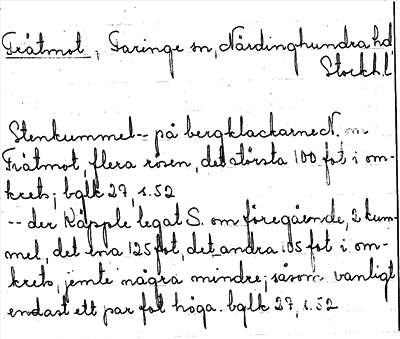 Tråtmot, Faringe sn, Närdinghundra hd
Stockh.l
Stenkummel-- på bergklackarne N. om
Tråtmot, flera rösen, det största 100 fot i om-
krets; bglk 27, s. 52
-- der Käpple legat S. om föregående, 2 kum-
mel, det ena 125 fot, det andra 105 fot i om-
krets, jemte några mindre; såsom vanligt
endast ett par fot höga. bglk 27, s. 52